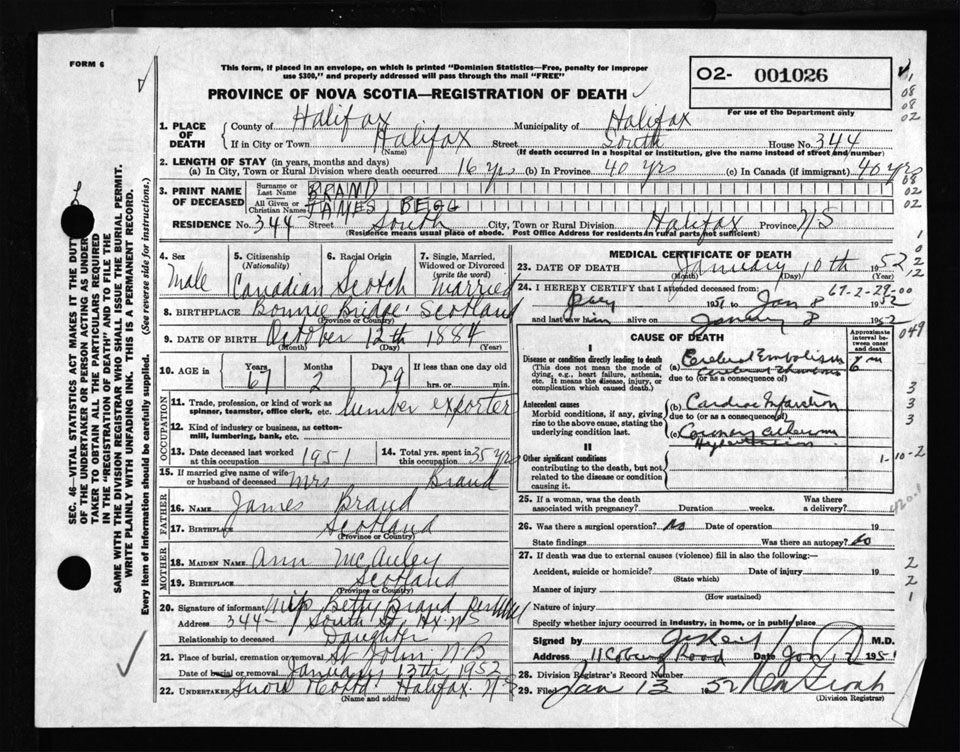 FORM 6
This form, if placed in an envelope, on which is printed "Dominion Statistics—Free, penalty for improper
use $300," and properly addressed will pass through the mail "FREE"
02- 001026
For use of the Department only
PROVINCE OF NOVA SCOTIA—REGISTRATION OF DEATH
1. PLACE OF DEATH
County of Halifax Municipality of Halifax
If in City or Town Halifax Street South House No. 344
(Name) (If death occurred in a hospital or institution, give the name instead of street and number)
2. LENGTH OF STAY (in years, months and days)
(a) In City, Town or Rural Division where death occurred 16 yrs (b) In Province 40 yrs (c) In Canada (if immigrant) 40 yrs
3. PRINT NAME OF DECEASED
Surname or Last Name BRAND
All Given or Christian Names JAMES BEGG
RESIDENCE No. 344 Street South City, Town or Rural Division Halifax Province N.S
(Residence means usual place of abode. Post Office Address for residents in rural parts not sufficient)
4. Sex Male
5. Citizenship (Nationality) Canadian
6. Racial Origin Scotch
7. Single, Married, Widowed or Divorced (write the word) Married
8. BIRTHPLACE Bonnie Bridge Scotland
9. DATE OF BIRTH October 12th 1884
(Month) (Day) (Year)
10. AGE in Years 67 Months 2 Days 29 If less than one day old hrs. or min.
OCCUPATION
11. Trade, profession, or kind of work as spinner, teamster, office clerk, etc. lumber exporter
12. Kind of industry or business, as cotton-mill, lumbering, bank, etc.
13. Date deceased last worked at this occupation 1951
14. Total yrs. spent in this occupation 35 yrs
15. If married give name of wife or husband of deceased Mrs Brand
FATHER
16. NAME James Brand
17. BIRTHPLACE Scotland
(Province or Country)
MOTHER
18. MAIDEN NAME Ann McAuley
19. BIRTHPLACE Scotland
(Province or Country)
20. Signature of informant Miss Betty Brand
Address 344 - South St. Hx. N S
Relationship to deceased Daughter
21. Place of burial, cremation or removal St John N B
Date of burial or removal January 13th 1952
22. Undertaker Halifax N-S
(Name and address)
MEDICAL CERTIFICATE OF DEATH
23. DATE OF DEATH January 10th 1952
(Month) (Day)
24. I HEREBY CERTIFY that I attended deceased from: 67-2-29-00
1951 to Jan 8 1952
and last saw him alive on January 8 1952
CAUSE OF DEATH
Approximate interval between onset and death
I
Disease or condition directly leading to death
(This does not mean the mode of dying, e.g., heart failure, asthenia, etc. It means the disease, injury, or complication which caused death.)
(a) Cerebral Embolism
due to (or as a consequence of)
Antecedent causes
Morbid conditions, if any, giving rise to the above cause, stating the underlying condition last.
(b) Cardiac Infarction
due to (or as a consequence of)
(c) Coronary atheroma
Hypertension
II
Other significant conditions contributing to the death, but not related to the disease or condition causing it.
1-10-2
25. If a woman, was the death associated with pregnancy? Duration weeks. Was there a delivery?
26. Was there surgical operation? No Date of operation 19
State findings Was there an autopsy? No
27. If death was due to external causes (violence) fill in also the following:—
Accident, suicide or homicide? Date of injury 19
(State which)
Manner of injury
(How sustained)
Nature of injury
Specify whether injury occurred in industry, in home, or in public place
Signed by M.D.
Address 11 Coburg Road Date Jan. 1951
28. Division Registrar's Record Number
29. Filed Jan 13 1952
(Division Registrar)
SEC. 46—VITAL STATISTICS ACT MAKES IT THE DUTY
OF THE UNDERTAKER OR PERSON ACTING AS UNDERTAKER TO OBTAIN ALL THE PARTICULARS REQUIRED
IN THE "REGISTRATION OF DEATH" AND TO FILE THE
SAME WITH THE DIVISION REGISTRAR WHO SHALL ISSUE THE BURIAL PERMIT.
WRITE PLAINLY WITH UNFADING INK. THIS IS A PERMANENT RECORD.
Every item of information should be carefully supplied. (See reverse side for instructions.)